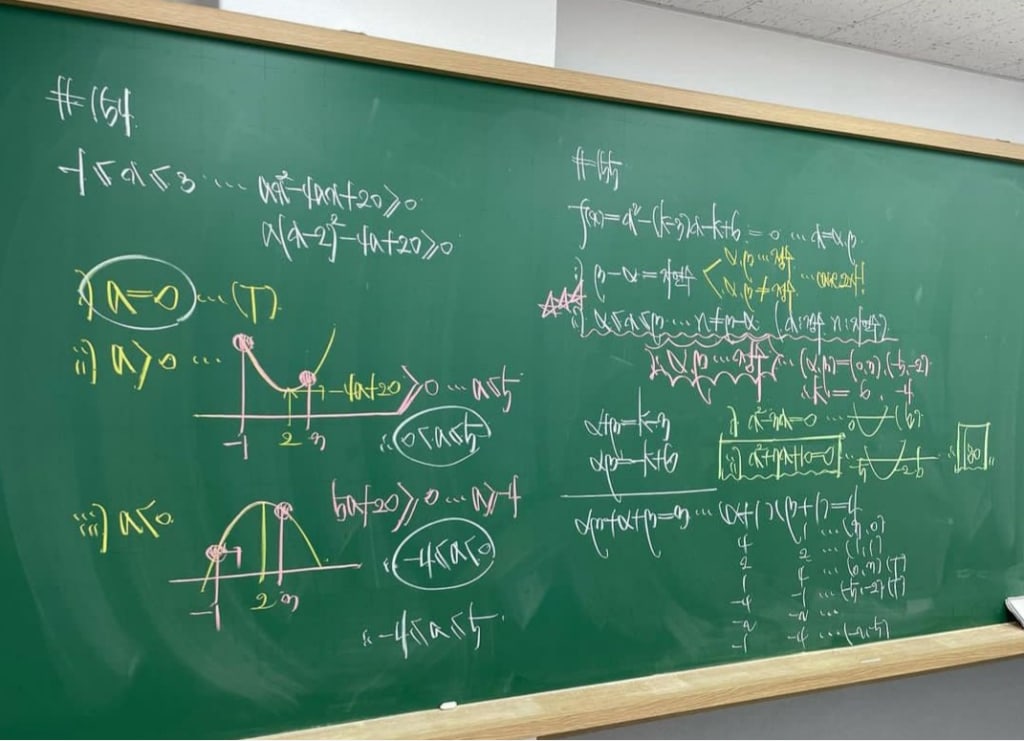 #164
-1≤x≤3 … ax²-4ax+20≥0
a(x-2)²-4a+20≥0
i) a=0 … (T)
ii) a>0 …
-4a+20≥0 … a≤5
-1 2 3
∴ 0<a≤5
iii) a<0
5a+20≥0 … a≥-4
∴ -4≤a<0
-1 2 3
∴ -4≤a≤5
#165
f(x)=x²-(k-3)x-k+6=0 … x=α,β
i) β-α=자연수
α,β … 정수
α,β≠정수
ii) α≤x≤β … n≠β-α (x:정수 n:자연수)
∴ α,β … 정수 … (α,β)=(0,3),(-5,-2)
∴ k=6, -4
α+β=k-3
αβ=-k+6
i) x²-3x=0 …
ii) x²+7x+10=0 …
αβ+α+β=3 … (α+1)(β+1)=4
4 1 … (3,0)
2 2 … (1,1)
1 4 … (0,3)(T)
-4 -1 … (-5,-2)(T)
-2 -2 …
-1 -4 … (-2,-5)